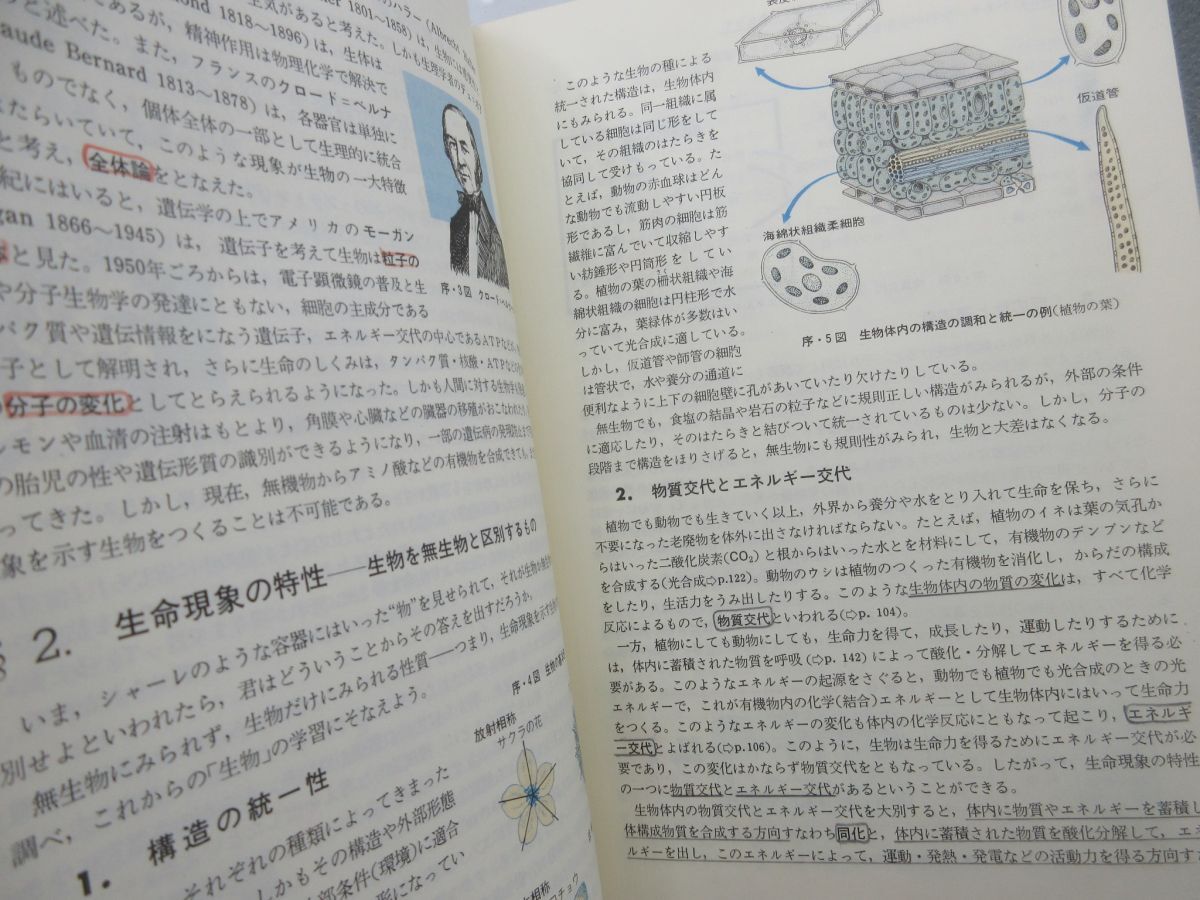 のハラー (Albrecht
er 1801〜1858) は, 生物には
生気があると考えた。しかも生理学者の
ond 1818〜1896) は, 生体は
であるが, 精神作用は物理化学で解決で
と述べた。また, フランスのクロード＝ベルナ
aude Bernard 1813〜1878) は, 各器官は単独に
ものでなく, 個体全体の一部として生理的に統合
たらいていて, このような現象が生物の一大特徴
と考え, 全体論をとなえた。
紀にはいると, 遺伝学の上でアメリカのモーガン
gan 1866〜1945) は, 遺伝子を考えて生物は粒子の
と見た。1950年ごろからは, 電子顕微鏡の普及と生
や分子生物学の発達にともない, 細胞の主成分である
パク質や遺伝情報をになう遺伝子, エネルギー交代の中心であるATPなどが
子として解明され, さらに生命のしくみは, タンパク質・核酸・ATPなど
分子の変化としてとらえられるようになった。しかも人間に対する生物学
ルモンや血清の注射はもとより, 角膜や心臓などの臓器の移植がおこなわれ
の胎児の性や遺伝形質の識別ができるようになり, 一部の遺伝病の発現
ってきた。しかし, 現在, 無機物からアミノ酸などの有機物を合成できても,
象を示す生物をつくることは不可能である。
序・3図 クロード＝ベル
2. 生命現象の特性——生物を無生物と区別するもの
いま, シャーレのような容器にはいった“物”を見せられて, それが生物か
別せよといわれたら, 君はどういうことからその答えを出すだろうか。
無生物にみられず, 生物だけにみられる性質——つまり, 生命現象を示す
調べ, これからの「生物」の学習にそなえよう。
1. 構造の統一性
それぞれの種類によってきまった
しかもその構造や外部形態
部条件(環境)に適合
形になってい
序・4図 生物の
放射相称
サクラの花
相称
チョウ
このような生物の種による
統一された構造は, 生物体内
にもみられる。同一組織に属
している細胞は同じ形をして
いて, その組織のはたらきを
協同して受けもっている。た
とえば, 動物の赤血球はどん
な動物でも流動しやすい円板
形であるし, 筋肉の細胞は筋
繊維に富んでいて収縮しやす
い紡錘形や円筒形をしてい
る。植物の葉の柵状組織や海
綿状組織の細胞は円柱形で水
分に富み, 葉緑体が多数はい
っていて光合成に適している。
しかし, 仮道管や師管の細胞
は管状で, 水や養分の通道に
便利なように上下の細胞壁に孔があいていたり欠けたりしている。
無生物でも, 食塩の結晶や岩石の粒子などに規則正しい構造がみられるが, 外部の条件
に適応したり, そのはたらきと結びついて統一されているものは少ない。しかし, 分子の
段階まで構造をほりさげると, 無生物にも規則性がみられ, 生物と大差はなくなる。
仮道管
海綿状組織柔細胞
序・5図 生物体内の構造の調和と統一の例(植物の葉)
2. 物質交代とエネルギー交代
植物でも動物でも生きていく以上, 外界から養分や水をとり入れて生命を保ち, さらに
不要になった老廃物を体外に出さなければならない。たとえば, 植物のイネは葉の気孔か
らはいった二酸化炭素(CO₂)と根からはいった水とを材料にして, 有機物のデンプンなど
を合成する(光合成⇨p.122)。動物のウシは植物のつくった有機物を消化し, からだの構成
をしたり, 生活力をうみ出したりする。このような生物体内の物質の変化は, すべて化学
反応によるもので, 物質交代といわれる(⇨p. 104)。
一方, 植物にしても動物にしても, 生命力を得て, 成長したり, 運動したりするために
は, 体内に蓄積された物質を呼吸(⇨p. 142)によって酸化・分解してエネルギーを得る必
要がある。このようなエネルギーの起源をさぐると, 動物でも植物でも光合成のときの光
エネルギーで, これが有機物内の化学(結合)エネルギーとして生物体内にはいって生命力
をつくる。このようなエネルギーの変化も体内の化学反応にともなって起こり, エネルギ
ー交代とよばれる(⇨p.106)。このように, 生物は生命力を得るためにエネルギー交代が必
要であり, この変化はかならず物質交代をともなっている。したがって, 生命現象の特性
の一つに物質交代とエネルギー交代があるということができる。
生物体内の物質交代とエネルギー交代を大別すると, 体内に物質やエネルギーを蓄積し
体構成物質を合成する方向すなわち同化と, 体内に蓄積された物質を酸化分解して, エネ
ルギーを出し, このエネルギーによって, 運動・発熱・発電などの活動力を得る方向す